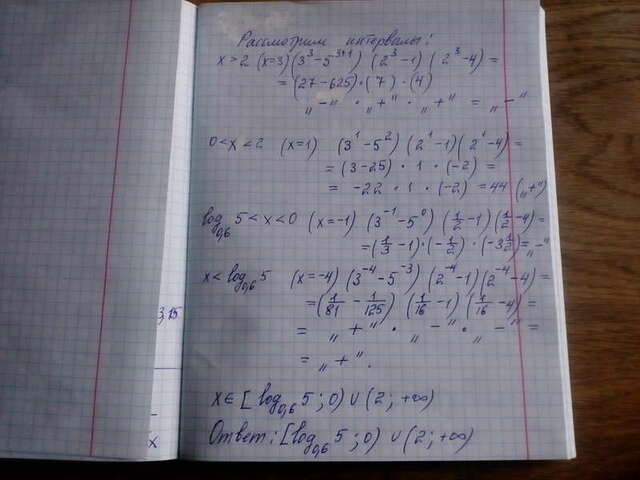 Рассмотрим интервалы:
x > 2 (x=3) (3³ - 5³⁺¹) (2³ - 1) (2³ - 4) =
= (27 - 625) · (7) · (4)
„ - " · „ + " · „ + " = „ - "
0 < x < 2 (x=1) (3¹ - 5²) (2¹ - 1) (2¹ - 4) =
= (3 - 25) · 1 · (-2) =
= -22 · 1 · (-2) = 44 („+")
log₀,₆ 5 < x < 0 (x=-1) (3⁻¹ - 5⁰) (1/2 - 1) (1/2 - 4) =
= (1/3 - 1) · (-1/2) · (-3 1/2) = „-"
x < log₀,₆ 5 (x=-4) (3⁻⁴ - 5⁻³) (2⁻⁴ - 1) (2⁻⁴ - 4) =
= (1/81 - 1/125) (1/16 - 1) (1/16 - 4) =
= „ + " · „ - " · „ - " =
= „ + ".
x ∈ [log₀,₆ 5; 0) ∪ (2; +∞)
Ответ: [log₀,₆ 5; 0) ∪ (2; +∞)
x